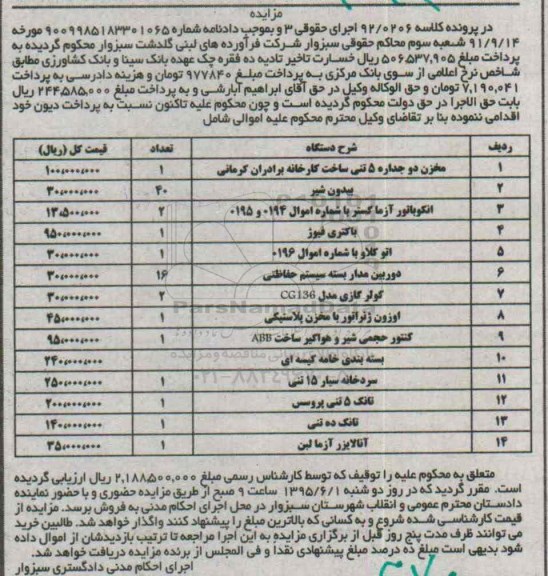 مزایده
در پرونده کلاسه 92/0206 اجرای حقوقی 3 و بموجب دادنامه شماره 9009985183301065 مورخه
91/9/14 شعبه سوم محاکم حقوقی سبزوار شرکت فرآورده های لبنی گلدشت سبزوار محکوم گردیده به
پرداخت مبلغ 506,537,905 ریال خسارت تاخیر تادیه ده فقره چک عهده بانک سینا و بانک کشاورزی مطابق
شاخص نرخ اعلامی از سوی بانک مرکزی به پرداخت مبلغ 977840 تومان و هزینه دادرسی به پرداخت
7,190,041 تومان و حق الوکاله وکیل در حق آقای ابراهیم آبارشی و به پرداخت مبلغ 244,585,000 ریال
بابت حق الاجرا در حق دولت محکوم گردیده است و چون محکوم علیه تاکنون نسبت به پرداخت دیون خود
اقدامی ننموده بنا بر تقاضای وکیل محترم محکوم علیه اموالی شامل
ردیف شرح دستگاه تعداد قیمت کل (ریال)
1 مخزن دو جداره 5 تنی ساخت کارخانه برادران کرمانی 1 100,000,000
2 بیدون شیر 40 30,000,000
3 انکوباتور آزما گستر با شماره اموال 0194 و 0195 2 13,500,000
4 باکتری فیوژ 1 950,000,000
5 اتو کلاو با شماره اموال 0196 1 30,000,000
6 دوربین مدار بسته سیستم حفاظتی 16 30,000,000
7 کولر گازی مدل CG136 2 30,000,000
8 اوزون ژنراتور با مخزن پلاستیکی 1 45,000,000
9 کنتور حجمی شیر و هواگیر ساخت ABB 1 95,000,000
10 بسته بندی خامه کیسه ای 240,000,000
11 سردخانه سیار 15 تنی 1 250,000,000
12 تانک 5 تنی پروسس 1 200,000,000
13 تانک ده تنی 1 140,000,000
14 آنالایزر آزما لبن 1 35,000,000
ParsNamadData
021-88349670
متعلق به محکوم علیه را توقیف که توسط کارشناس رسمی مبلغ 2,188,500,000 ریال ارزیابی گردیده
است. مقرر گردید که در روز دو شنبه 1395/6/1 ساعت 9 صبح از طریق مزایده حضوری و با حضور نماینده
دادستان محترم عمومی و انقلاب شهرستان سبزوار در محل اجرای احکام مدنی به فروش برسد. مزایده از
قیمت کارشناسی شده شروع و به کسانی که بالاترین مبلغ را پیشنهاد کنند واگذار خواهد شد. طالبین خرید
می توانند ظرف مدت پنج روز قبل از برگزاری مزایده به این اجرا مراجعه تا ترتیب بازدیدشان از اموال داده
شود بدیهی است مبلغ ده درصد مبلغ پیشنهادی نقدا و فی المجلس از برنده مزایده دریافت خواهد شد.
اجرای احکام مدنی دادگستری سبزوار